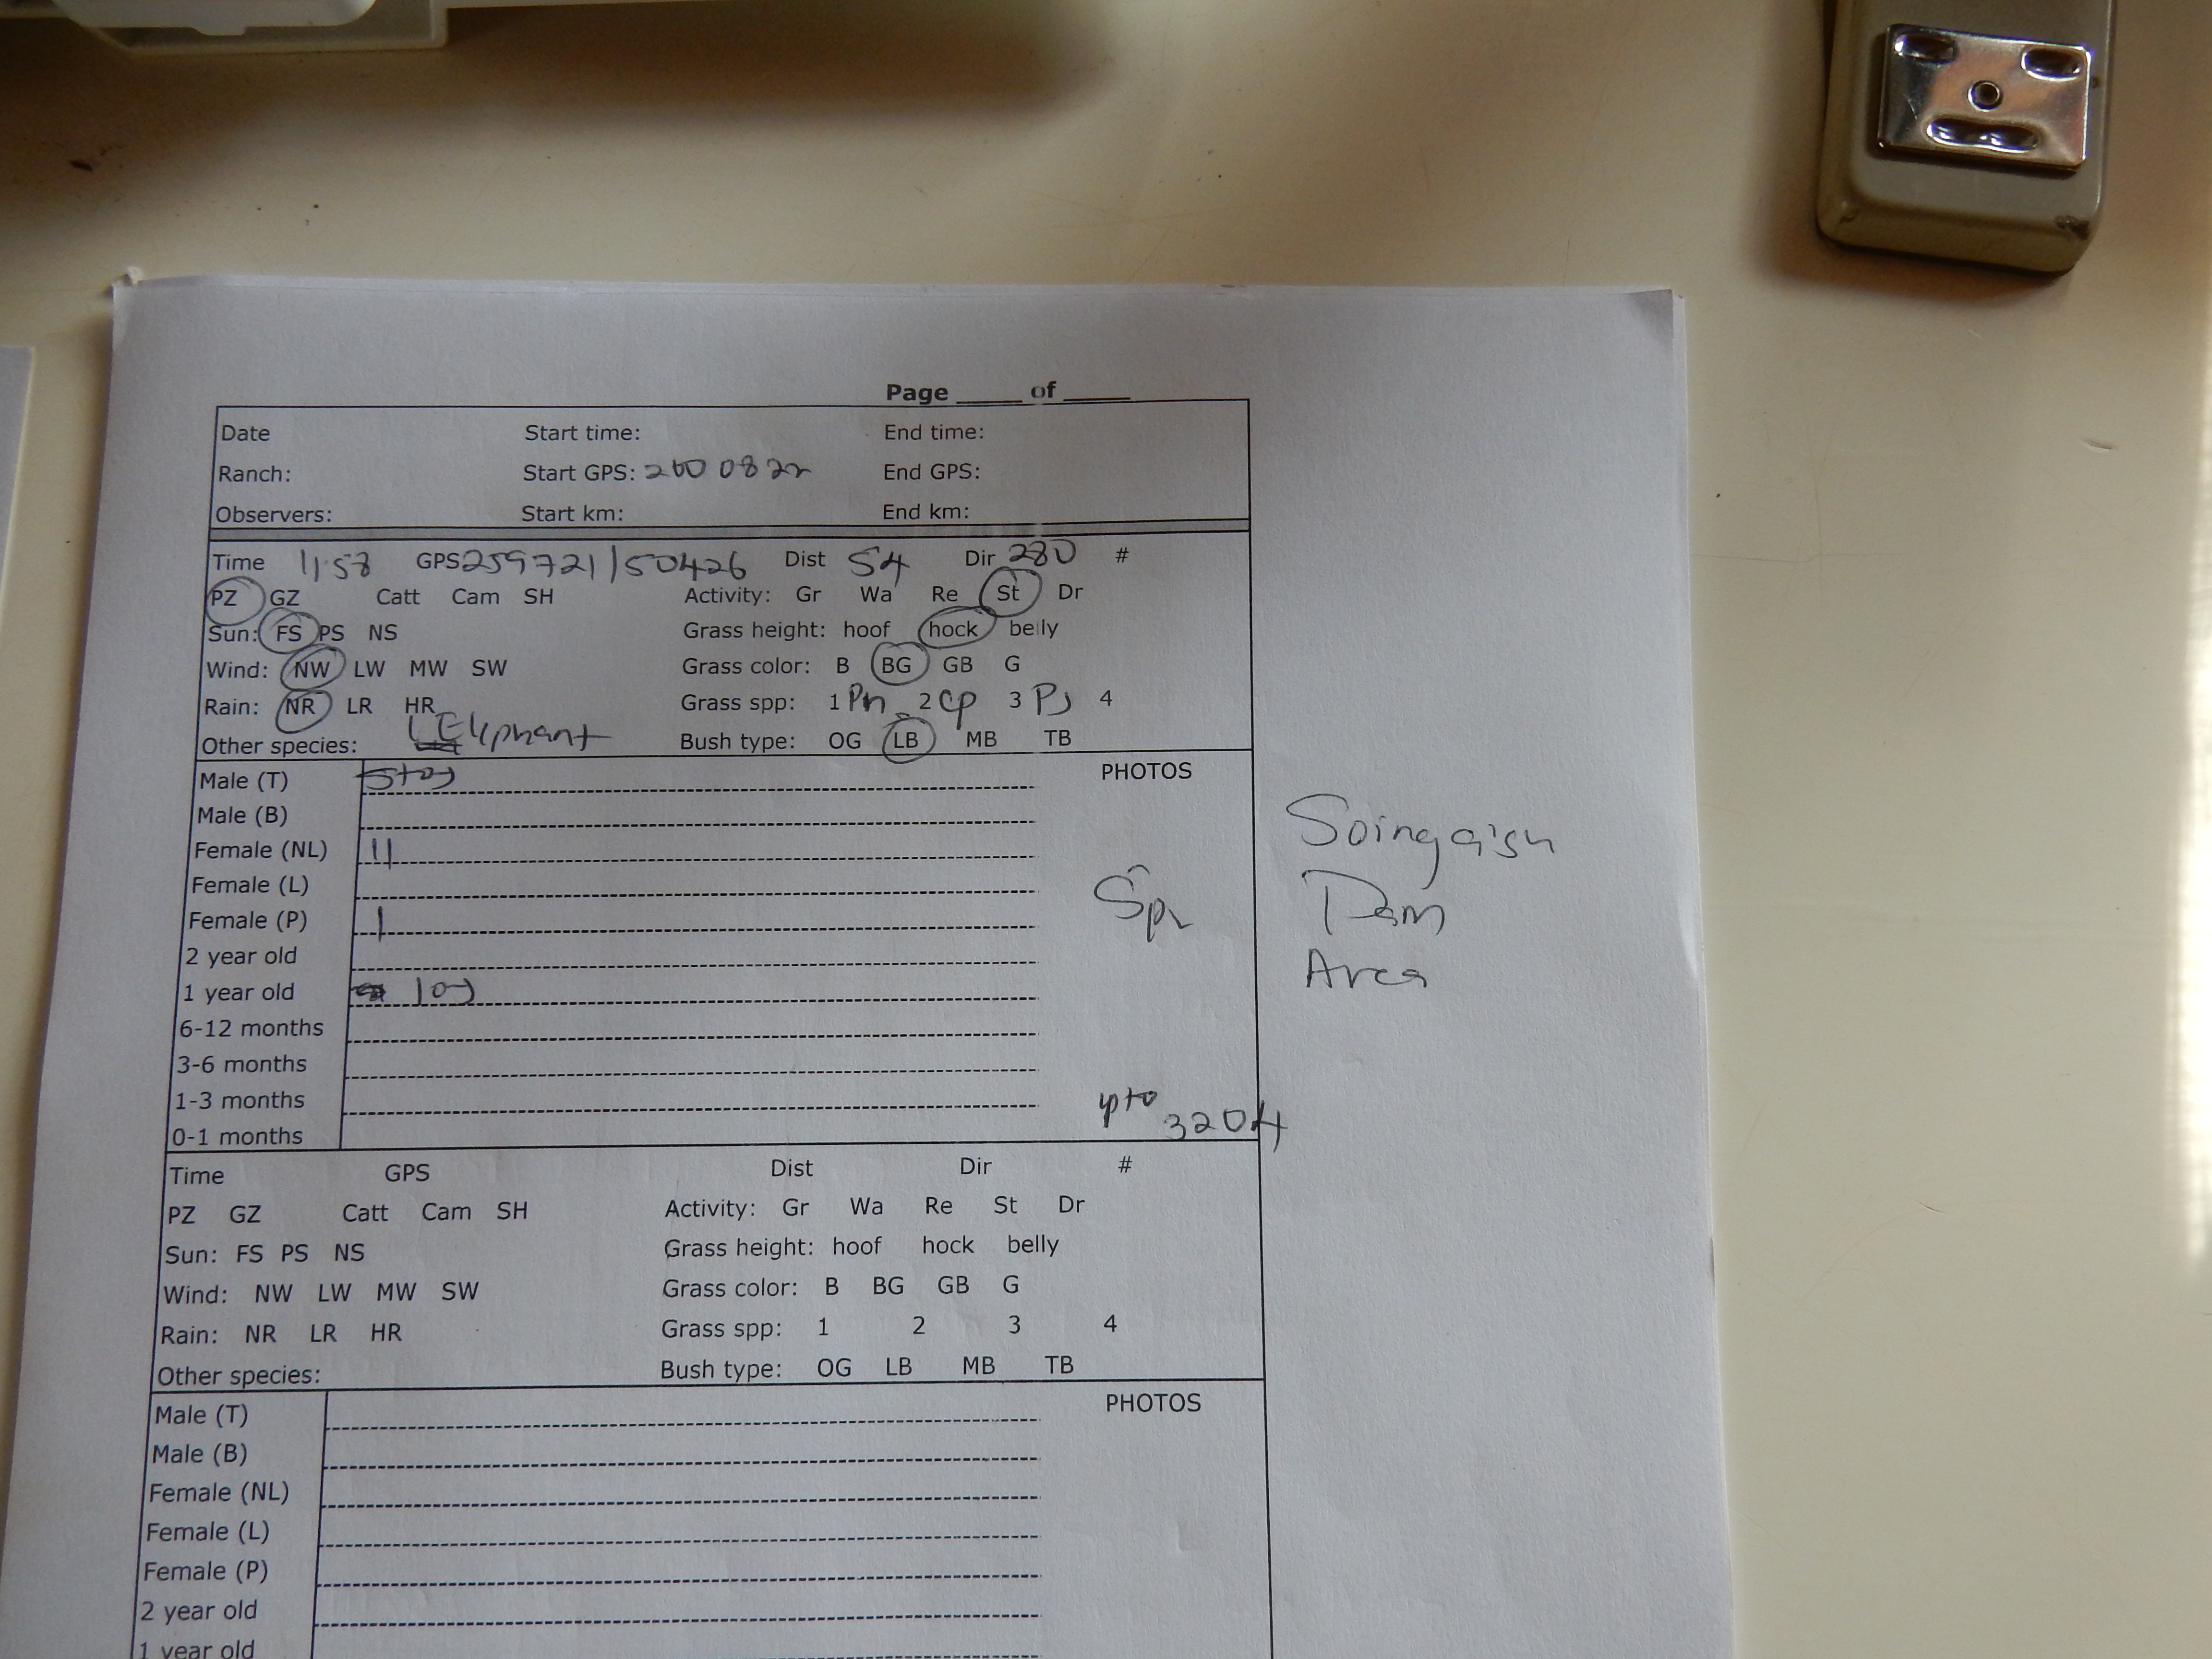 Page _____ of _____
Date Start time: End time:
Ranch: Start GPS: End GPS:
Observers: Start km: End km:
Time 11:58 GPS 259721/50426 Dist 54 Dir 280 #
PZ GZ Catt Cam SH Activity: Gr Wa Re St Dr
Sun: FS PS NS Grass height: hoof hock belly
Wind: NW LW MW SW Grass color: B BG GB G
Rain: NR LR HR Grass spp: 1 Pn 2 Cp 3 Pj 4
Other species: 1 Elephant Bush type: OG LB MB TB
Male (T) PHOTOS
Male (B)
Female (NL) 11
Female (L)
Female (P) 1
2 year old
1 year old
6-12 months
3-6 months
1-3 months
0-1 months
upto 3204
Dam
Area
Time GPS Dist Dir #
PZ GZ Catt Cam SH Activity: Gr Wa Re St Dr
Sun: FS PS NS Grass height: hoof hock belly
Wind: NW LW MW SW Grass color: B BG GB G
Rain: NR LR HR Grass spp: 1 2 3 4
Other species: Bush type: OG LB MB TB
Male (T) PHOTOS
Male (B)
Female (NL)
Female (L)
Female (P)
2 year old
1 year old